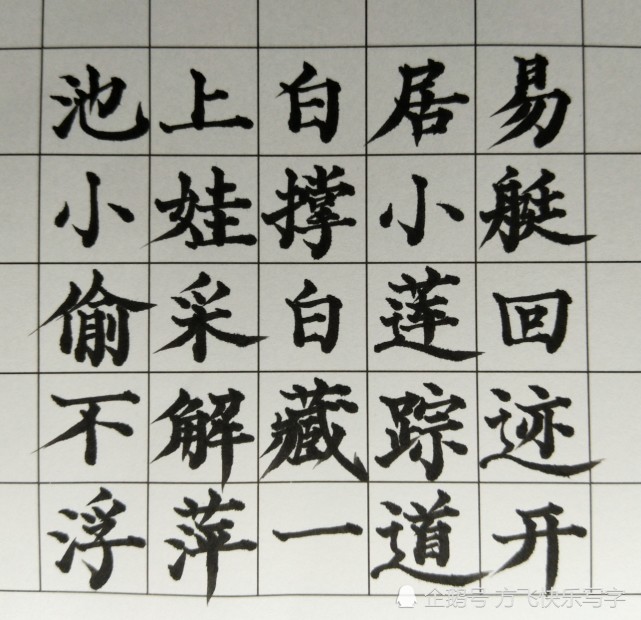 池上白居易
小娃撑小艇
偷采白莲回
不解藏踪迹
浮萍一道开
企鹅号 方飞快乐写字